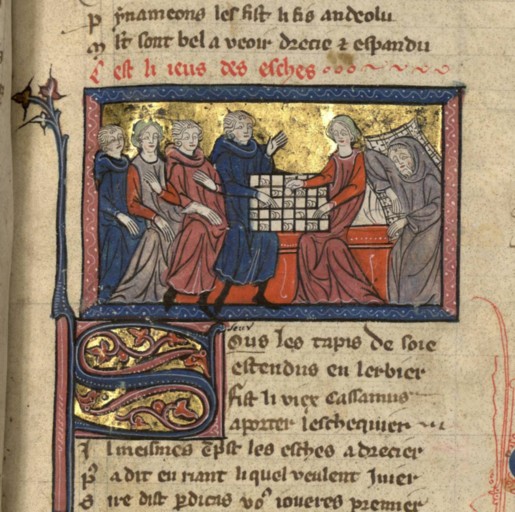 P ymameons les fist li fis andeolu
M lt sont bel a veoir drecie ⁊ espandu
C est li ieus des esches
Sous les tapis de soie
estendus en lerbier
fist li viex cassamus
aporter leschequier
I l meismes les esches a drecier
P a dit en riant liquel veulent iuier
S ire dist pdicas vo⁹ ioueres premier